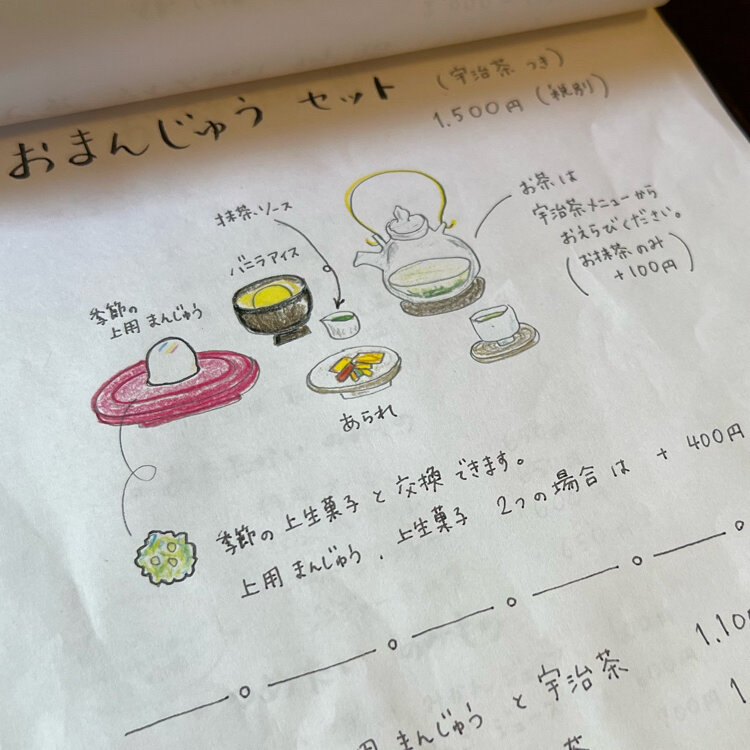 おまんじゅう セット
(宇治茶 つき)
1.500円 (税別)
お茶は
宇治茶メニューから
おえらびください。
(お抹茶のみ
+100円)
抹茶ソース
バニラアイス
季節の
上用まんじゅう
あられ
季節の上生菓子と交換できます。
上用まんじゅう、上生菓子 2つの場合は + 400円
まんじゅう と 宇治茶 1.10
茶 1